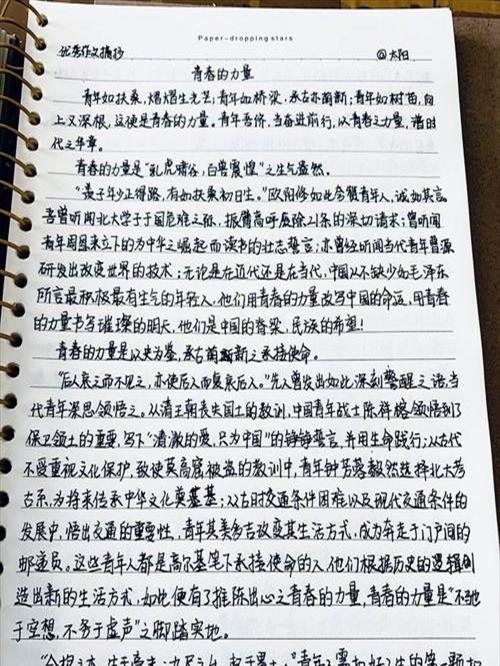 Paper-dropping stars
优秀作文摘抄 @太阳
青春的力量
青年如扶桑,熠熠生光艺;青年如桥梁,承古亦萌新;青年如树苗,向
上又深根,这便是青春的力量。青年吾侪,当奋进前行,以青春之力量,谱时
代之华章。
青春的力量是“乳虎啸谷,百兽震惶”之生气盎然。
“最是年少正得路,有如扶桑初日生。”欧阳修如此含赞青年人,诚如其言。
吾曾听闻北大学子于国危难之际,振臂高呼废除21条的深切请求;曾听闻
青年周恩来立下的为中华之崛起而读书的壮志誓言;亦曾经听闻当代青年曹源
研发出改变世界的技术;无论是在近代还是在当代,中国从不缺少如毛泽东
所言最积极最有生气的年轻人,他们用青春的力量改写中国的命运,用青春
的力量书写璀璨的明天,他们是中国的脊梁,民族的希望!
青春的力量是以史为鉴,承古萌新之承接使命。
“后人哀之而不鉴之,亦使后人而复哀后人。”先人曾发出如此深刻警醒之语,当
代青年深思领悟之。从清王朝丧失国土的教训,中国青年战士陈祥榕领悟到了
保卫领土的重要,写下“清澈的爱,只为中国”的铮铮誓言,并用生命践行;从古代
不受重视文化保护,致使莫高窟被盗的教训中,青年钟芳蓉毅然选择北大考
古系,为将来传承中华文化奠基基;从古时交通条件困难以及现代交通条件的
发展中,悟出交通的重要性,青年其美多吉改变其生活方式,成为奔走于门户间的
邮递员。这些青年人都是高尔基笔下承接使命的人,他们根据历史的逻辑创
造出新的生活方式,如此便有了推陈出心之青春的力量,青春的力量是“不驰
于空想,不务于虚声”之脚踏实地。